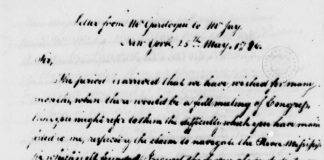 Letter from Mr Gardoqui to Mr Jay.
New York, 25th May, 1786.
Sir,
The period is arrived that we have wished for many
months, when there would be a full meeting of Congress
that you might refer to them the difficulty which you have main
tained to me, respecting the claim to navigate the River Mississippi